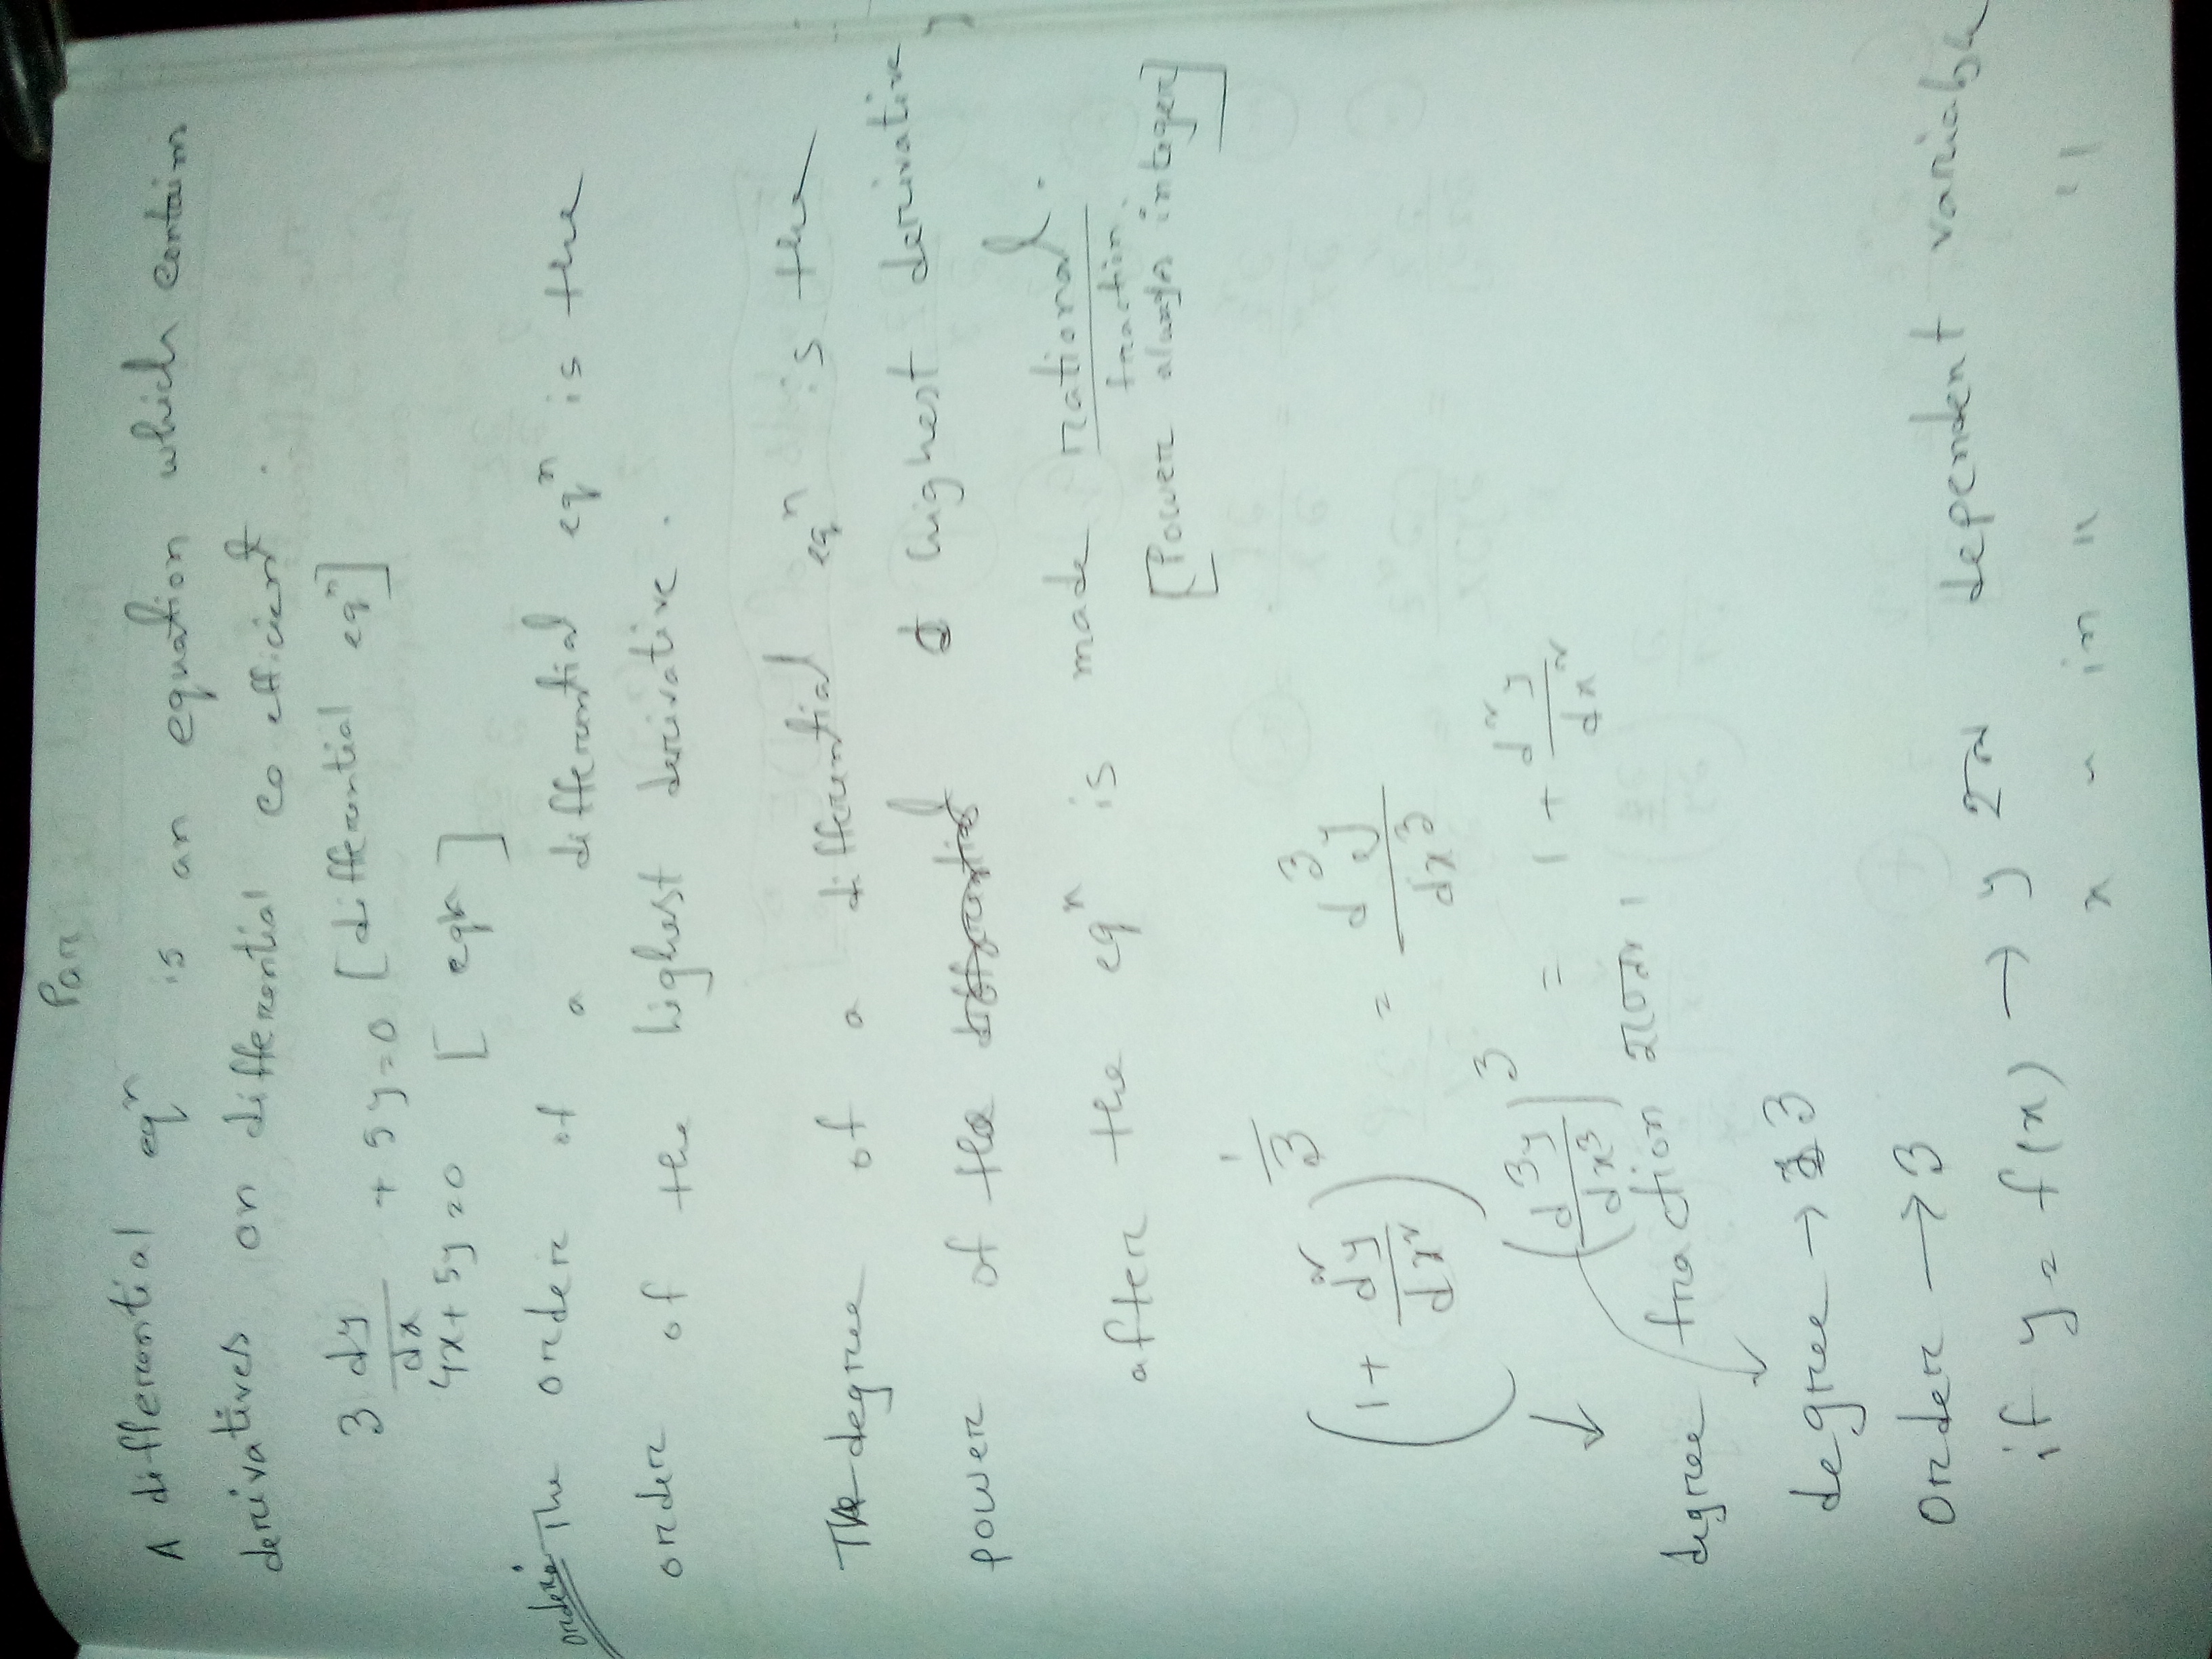 Par
A differential eqⁿ is an equation which contain
derivatives or differential co efficient.
3 dy/dx + 5y=0 [differential eqⁿ]
4x+5y=0 [ eqn ]
order: The order of a differential eqⁿ is the
order of the highest derivative.
The degree of a differential eqⁿ is the
power of the highest derivative
after the eqⁿ is made rational.
fraction
[Power always integer]
(1 + d²y/dx²)^(1/3) = d³y/dx³
(d³y/dx³)³ = 1 + d²y/dx²
degree fraction হবেনা।
degree → 3
Order → 3
if y = f(x) → y হল dependent variable
x " in " "